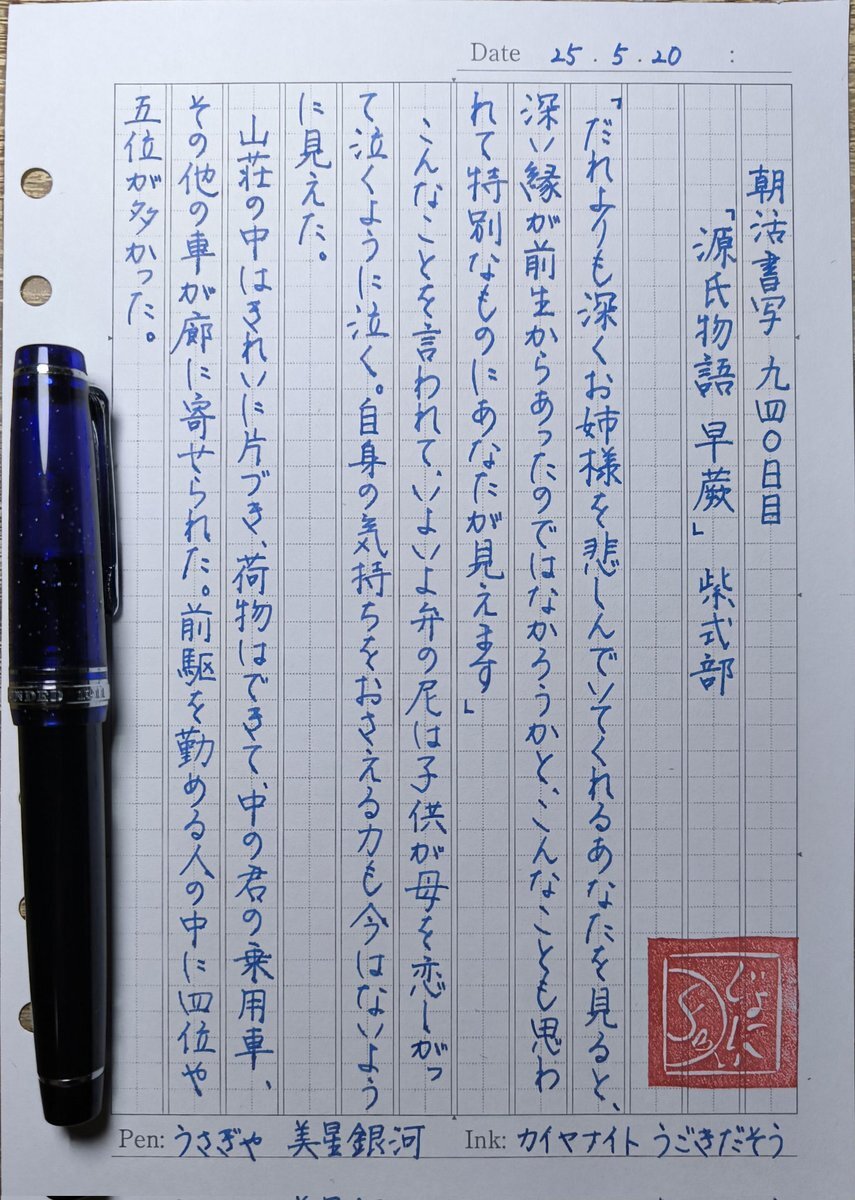 Date 25.5.20 :
朝活書写 九四〇日目
「源氏物語 早蕨」 紫式部
「だれよりも深くお姉様を悲しんでいてくれるあなたを見ると、
深い縁が前生からあったのではなかろうかと、こんなことも思わ
れて特別なものにあなたが見えます」
こんなことを言われて、いよいよ弁の尼は子供が母を恋しがっ
て泣くように泣く。自身の気持ちをおさえる力も今はないよう
に見えた。
山荘の中はきれいに片づき、荷物はできて、中の君の乗用車、
その他の車が廊に寄せられた。前駆を勤める人の中に四位や
五位が多かった。
Pen: うさぎや 美星銀河
Ink: カイヤナイト うごきだそう